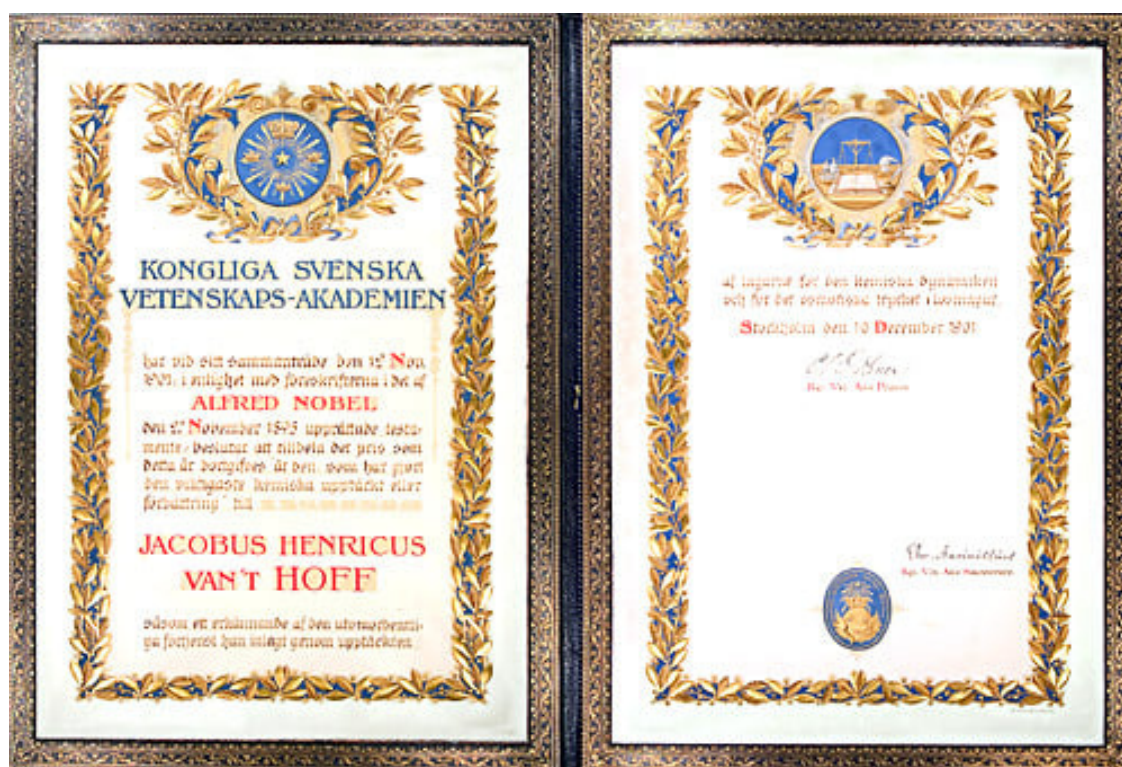 KONGLIGA SVENSKA
VETENSKAPS-AKADEMIEN
har vid sitt sammanträde den 12 Nov.
1901, i enlighet med föreskrifterna i det af
ALFRED NOBEL
den 27 November 1895 upprättade testa-
mente, beslutat att tilldela det pris som
detta år bortgifves åt den, som har gjort
den vigtigaste kemiska upptäckt eller
förbättring" till
JACOBUS HENRICUS
VAN'T HOFF
såsom ett erkännande af den utomordentli-
ga förtjenst han inlagt genom upptäckten
af lagarne för den kemiska dynamiken
och för det osmotiska trycket i lösningar.
Stockholm den 10 December 1901